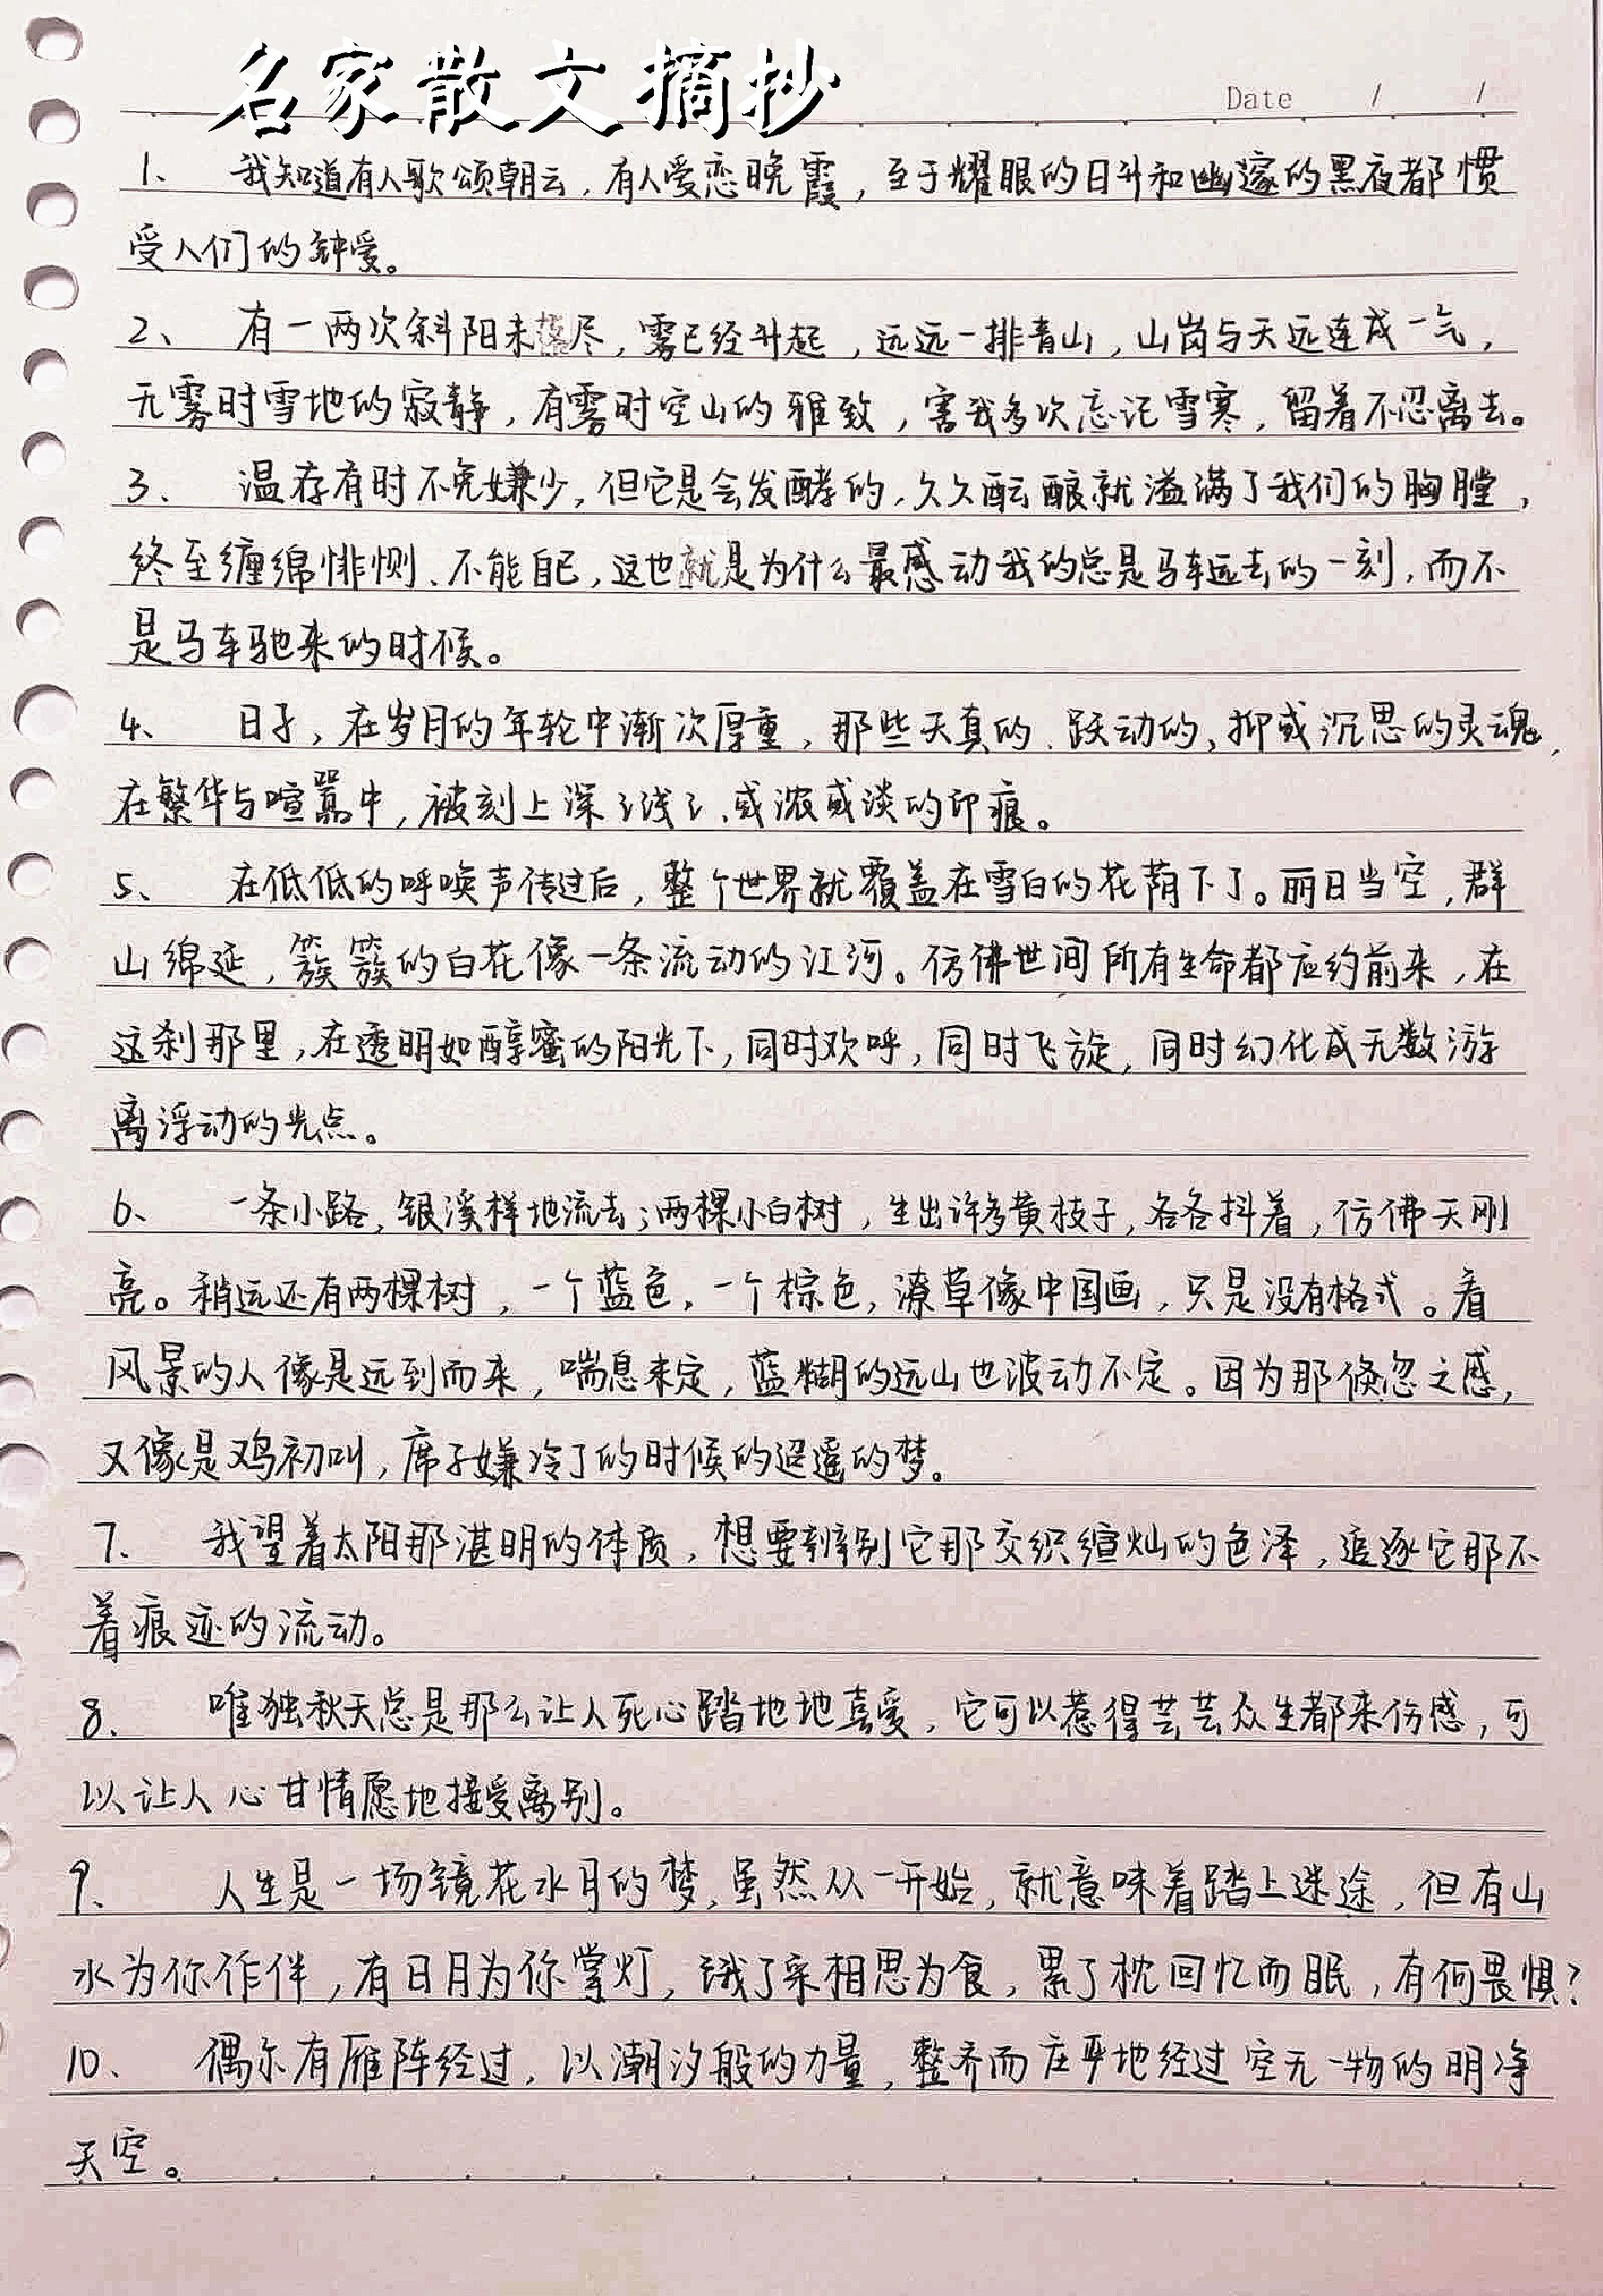 名家散文摘抄
Date / /
1、 我知道有人歌颂朝云，有人爱恋晚霞，至于耀眼的日升和幽邃的黑夜都惯
受人们的钟爱。
2、 有一两次斜阳未落尽，雾已经升起，远远一排青山，山岗与天远连成一气，
无雾时雪地的寂静，有雾时空山的雅致，害我多次忘记雪寒，留着不忍离去。
3、 温存有时不免嫌少，但它是会发酵的，久久酝酿就溢满了我们的胸膛，
终至缠绵悱恻、不能自已，这也就是为什么最感动我的总是马车远去的一刻，而不
是马车驰来的时候。
4、 日子，在岁月的年轮中渐次厚重，那些天真的、跃动的，抑或沉思的灵魂，
在繁华与喧嚣中，被刻上深深浅浅、或浓或淡的印痕。
5、 在低低的呼唤声传过后，整个世界就覆盖在雪白的花荫下了。丽日当空，群
山绵延，簇簇的白花像一条流动的江河。仿佛世间所有生命都应约前来，在
这刹那里，在透明如醇蜜的阳光下，同时欢呼，同时飞旋，同时幻化成无数游
离浮动的光点。
6、 一条小路，银溪样地流去；两棵小白树，生出许多黄枝子，各各抖着，仿佛天刚
亮。稍远还有两棵树，一个蓝色，一个棕色，潦草像中国画，只是没有格式。看
风景的人像是远到而来，喘息未定，蓝糊的远山也波动不定。因为那倏忽之感，
又像是鸡初叫，席子嫌冷了的时候的迢遥的梦。
7、 我望着太阳那湛明的体质，想要辨别它那交织绚灿的色泽，追逐它那不
着痕迹的流动。
8、 唯独秋天总是那么让人死心踏地地喜爱，它可以惹得芸芸众生都来伤感，可
以让人心甘情愿地接受离别。
9、 人生是一场镜花水月的梦，虽然从一开始，就意味着踏上迷途，但有山
水为你作伴，有日月为你掌灯，饿了采相思为食，累了枕回忆而眠，有何畏惧？
10、 偶尔有雁阵经过，以潮汐般的力量，整齐而庄严地经过空无一物的明净
天空。